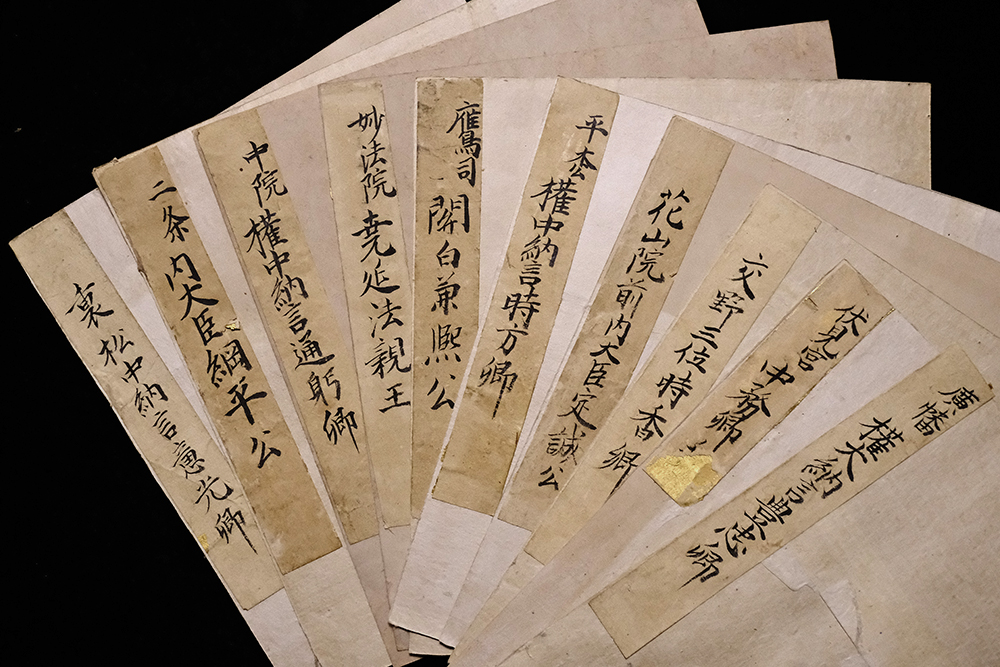 裏松中納言意光卿
二条内大臣綱平公
中院権中納言通躬卿
妙法院尭延法親王
鷹司関白兼熈公
平松権中納言時方卿
花山院前内大臣定誠公
交野三位時香卿
伏見宮中務卿
広幡権大納言豊忠卿